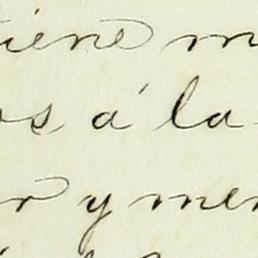 tiene m
os á la
r y men